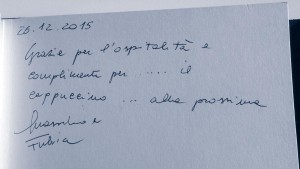 28.12.2015
Grazie per l'ospitalità e
complimenti per ..... il
cappuccino ... alla prossima
Massimo e
Fulvia